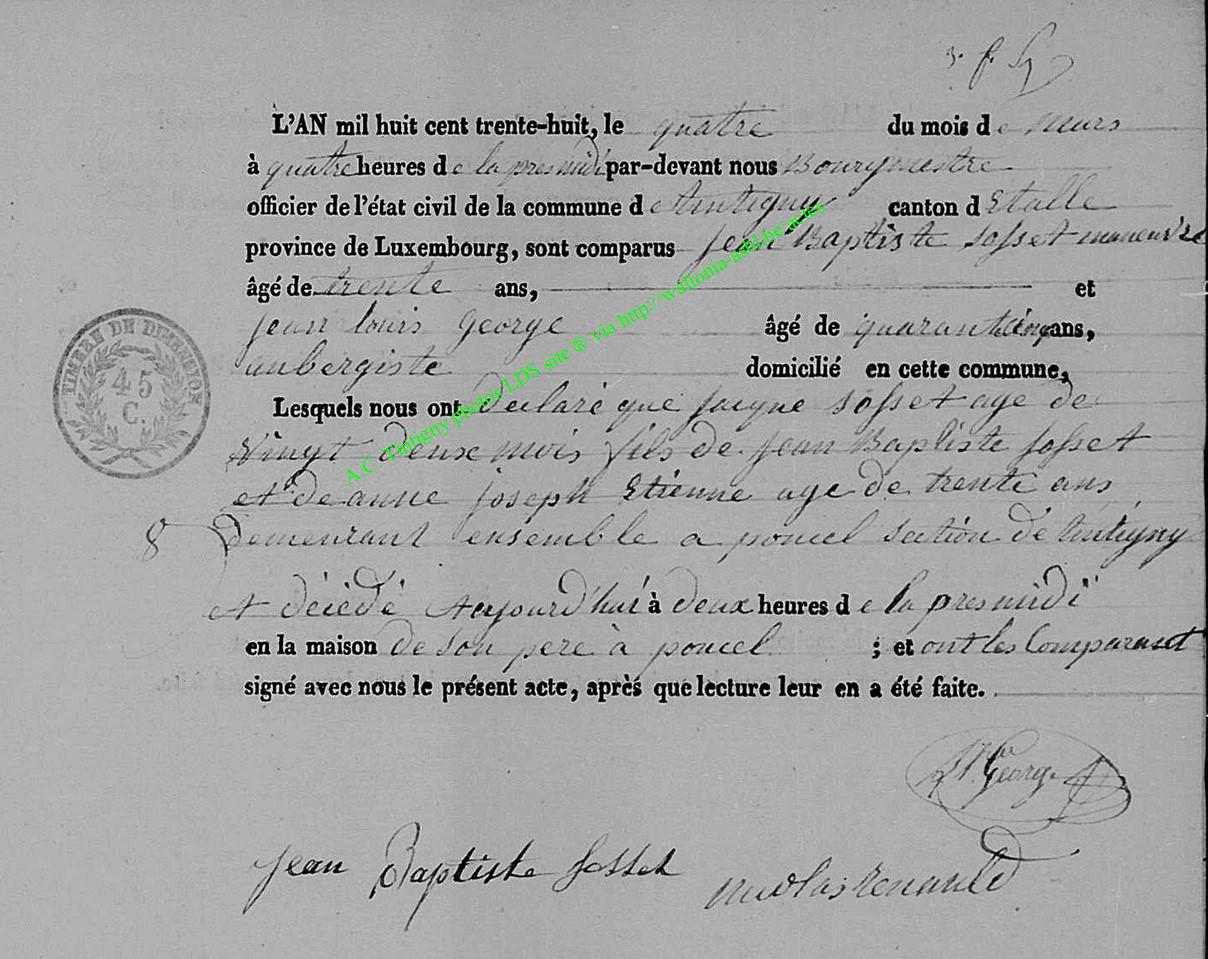 3. f.
L'AN mil huit cent trente-huit, le quatre du mois de Mars
à quatre heures de la presmidi par-devant nous Bourgmestre
officier de l'état civil de la commune de tintigny canton d Etalle
province de Luxembourg, sont comparus Jean Baptiste Sosset maneuvre
âgé de trente ans, et
jean louis George âgé de quarante cinq ans,
aubergiste domicilié en cette commune,
Lesquels nous ont declaré que jacque Sosset age de
Vingt deux mois fils de jean Baptiste Sosset
et de anne joseph Etienne age de trente ans
8 Demeurant ensemble a poncel section de tintigny
et décédé aujourd'hui à deux heures de la presmidi
en la maison de son pere à poncel ; et ont les Comparant
signé avec nous le présent acte, après que lecture leur en a été faite.
TIMBRE DE DIMENSION
45
C.
A.C. Tintigny photos LDS site ® via http://wallonia-asbl.be/actes
George
jean Baptiste Sosset
nicolas Renauld